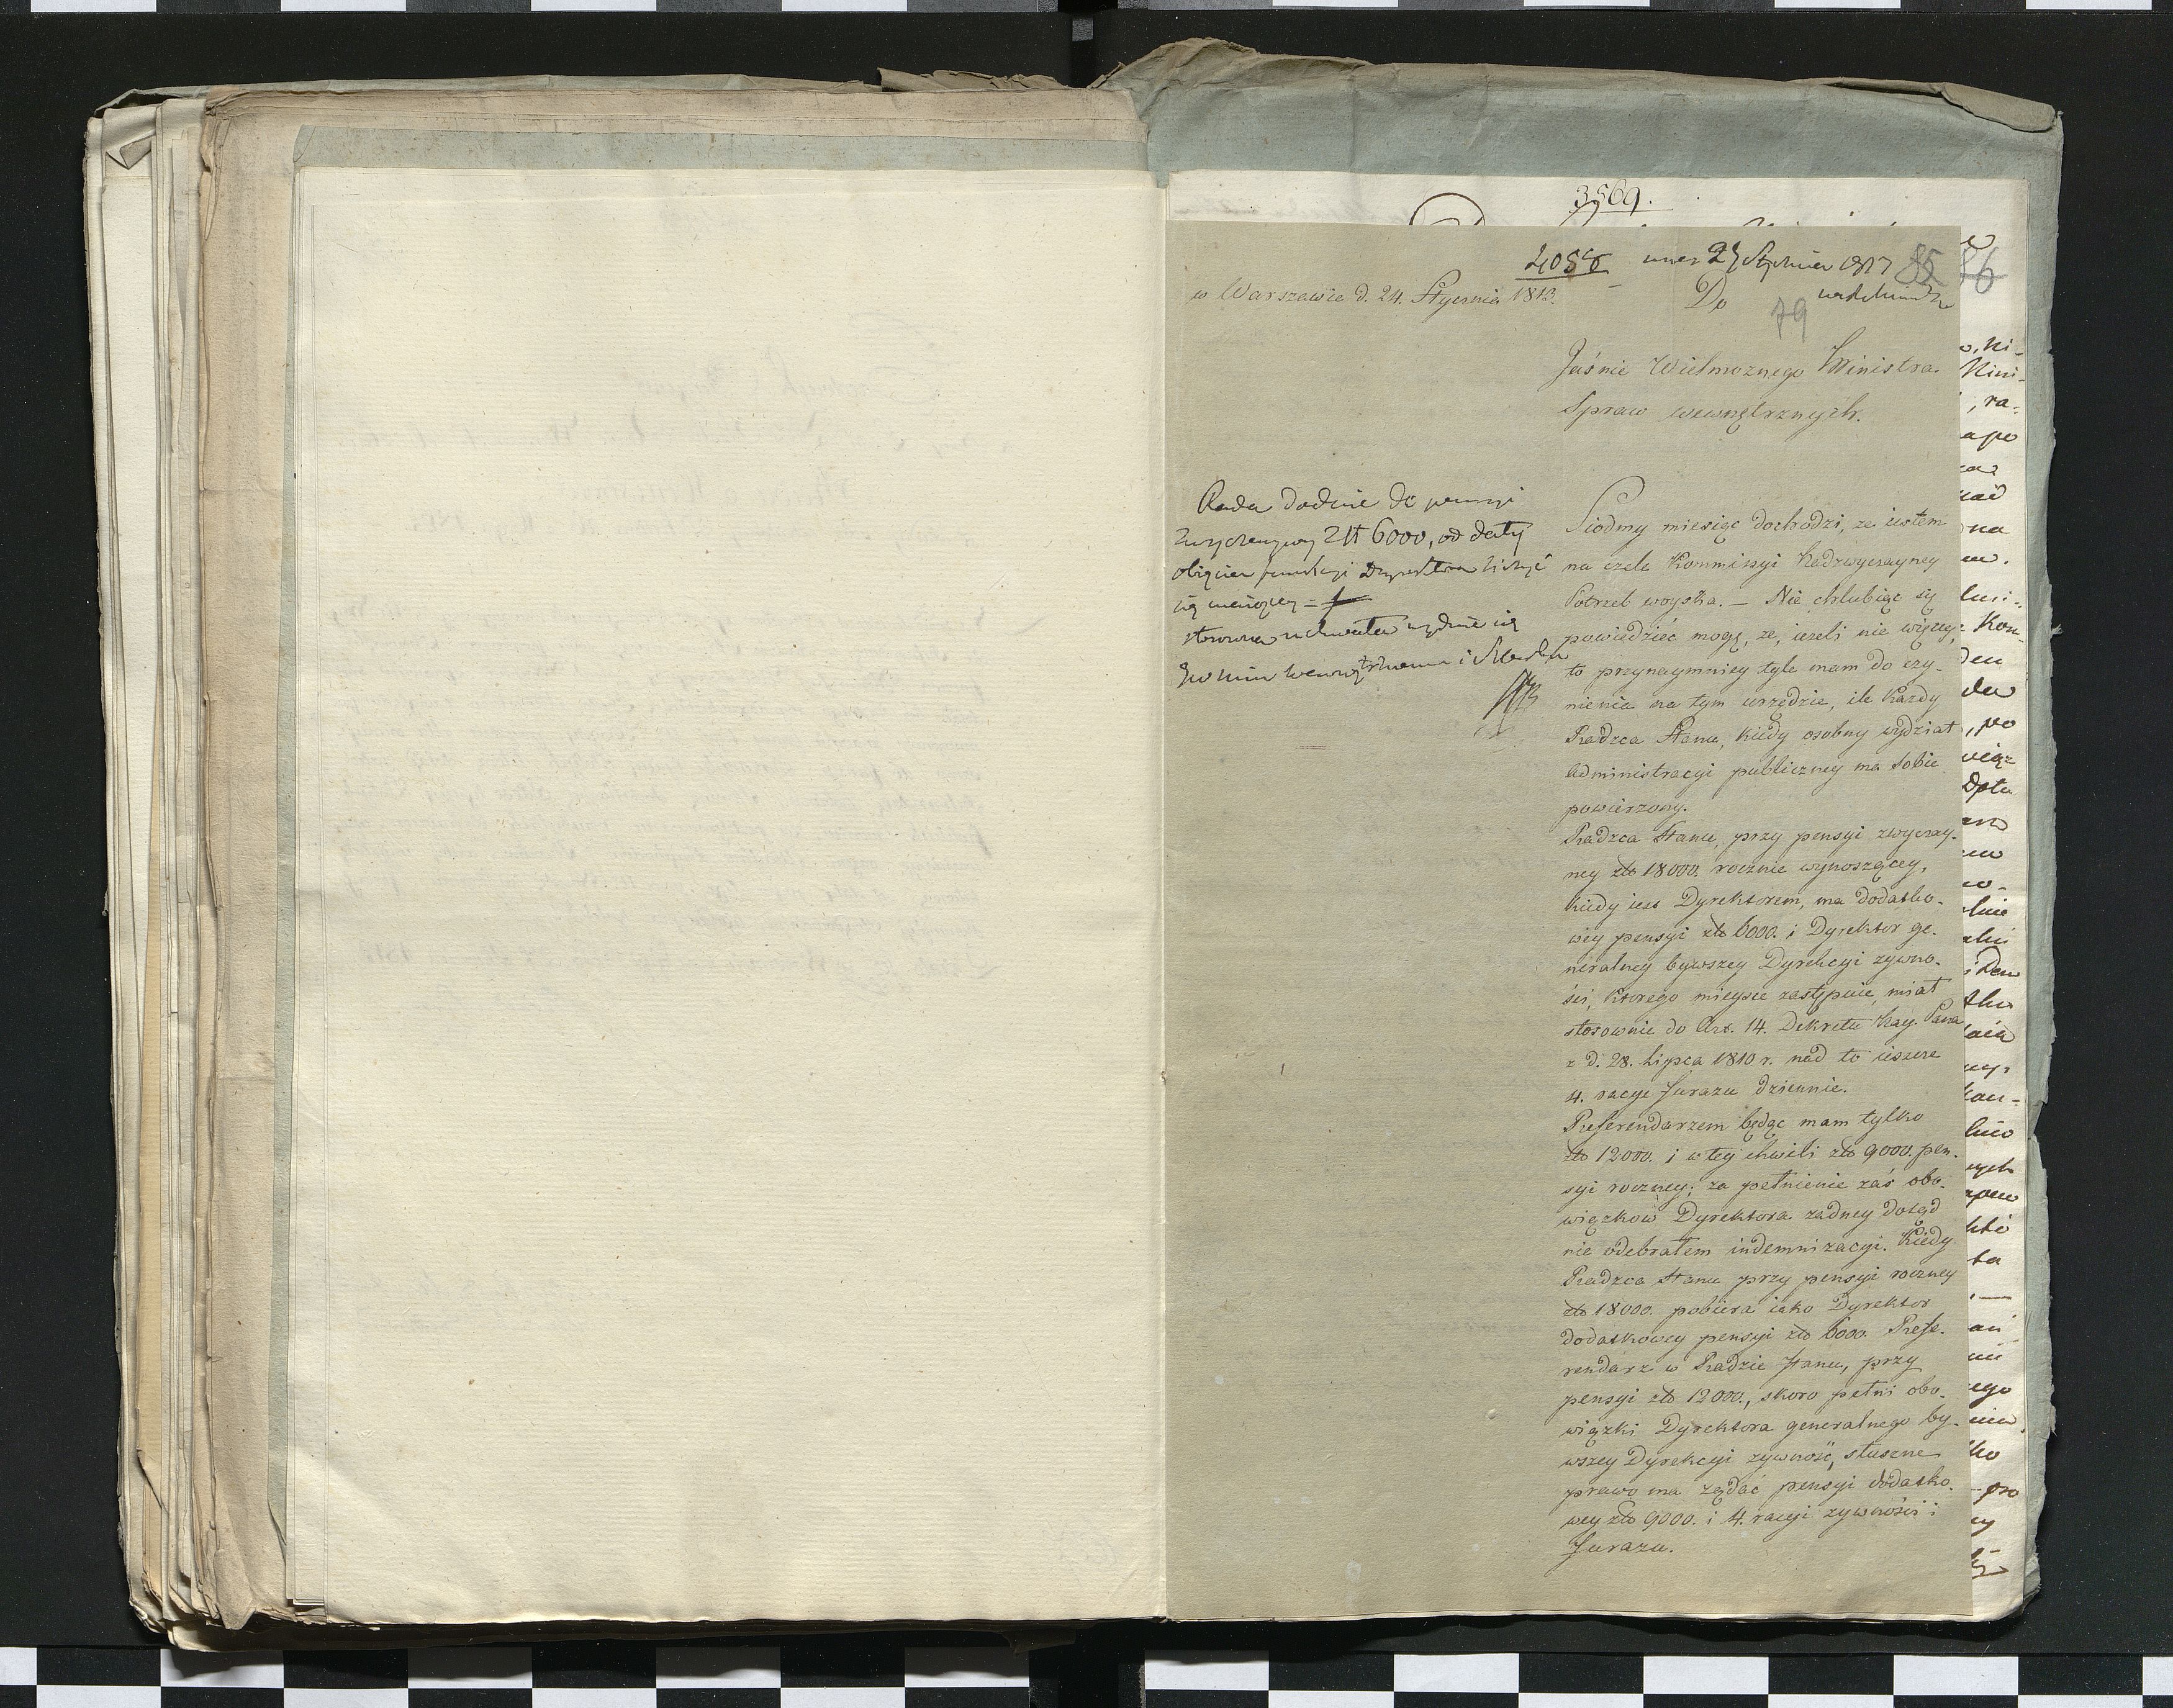 3569.
4058
85
86
w Warszawie d. 24. Stycznia 1813.
Do
79
Jaśnie Wielmożnego Ministra
Spraw wewnętrznych.
Rada dodaie do pensyi
zwyczayney 6000, od daty
obięcia funkcyi Dyrektora liczyć
się
stosowna uchwała
Siodmy miesiąc dochodzi, że iestem
na czele Kommissyi Nadzwyczayney
Potrzeb woyska. — Nie chlubiąc się
powiedzieć mogę, że, ieżeli nie więcey,
to przynaymniey tyle mam do czy-
nienia na tym urzędzie, ile każdy
Radzca Stanu, kiedy osobny wydział
administracyi publiczney ma sobie
powierzony.
Radzca Stanu, przy pensyi zwyczay-
ney złt 18000. rocznie wynoszącey,
kiedy iest Dyrektorem, ma dodatko-
wey pensyi złt 6000. i Dyrektor ge-
neralney bywszey Dyrekcyi żywno-
ści, ktorego mieysce zastępuie, miał
stosownie do Art. 14. Dekretu Nay. Pana
z d. 28. Lipca 1810 r. nad to ieszcze
4. racye furażu dziennie.
Referendarzem będąc mam tylko
złt 12000. i w tey chwili złt 9000. pen-
syi roczney; za pełnienie zaś obo-
wiązkow Dyrektora żadney dotąd
nie odebrałem indemnizacyi. Kiedy
Radzca Stanu przy pensyi roczney
złt 18000. pobiera iako Dyrektor
dodatkowey pensyi złt 6000. Refe-
rendarz w Radzie Stanu, przy
pensyi złt 12000., skoro pełni obo-
wiązki Dyrektora generalnego by-
wszey Dyrekcyi żywność, słuszne
prawo ma żądać pensyi dodatko-
wey złt 9000. i 4. racyi żywności i
furażu.